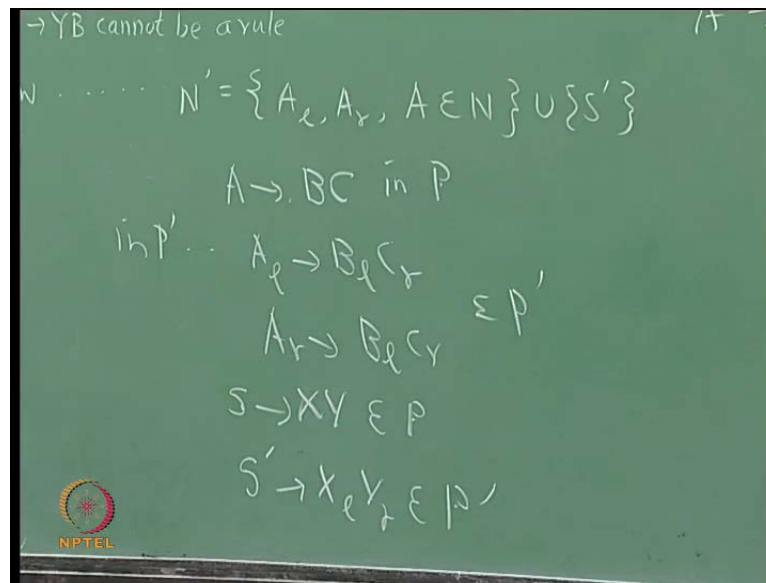 → YB cannot be a rule
N ...... N' = { A_ℓ, A_r, A ∈ N } ∪ { S' }
A → BC in P
in P' .. A_ℓ → B_ℓ C_r
A_r → B_ℓ C_r ∈ P'
S → XY ∈ P
S' → X_ℓ Y_r ∈ P'
NPTEL